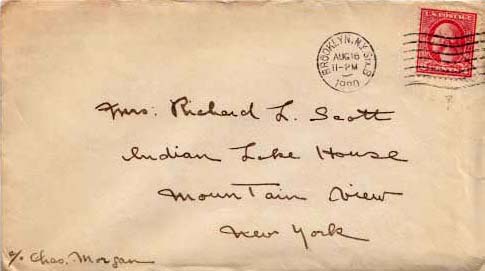 U.S. POSTAGE
BROOKLYN, N.Y.
AUG 16
11-PM
Mrs. Richard L. Scott
Indian Lake House
Mountain View
New York
c/o Chas. Morgan